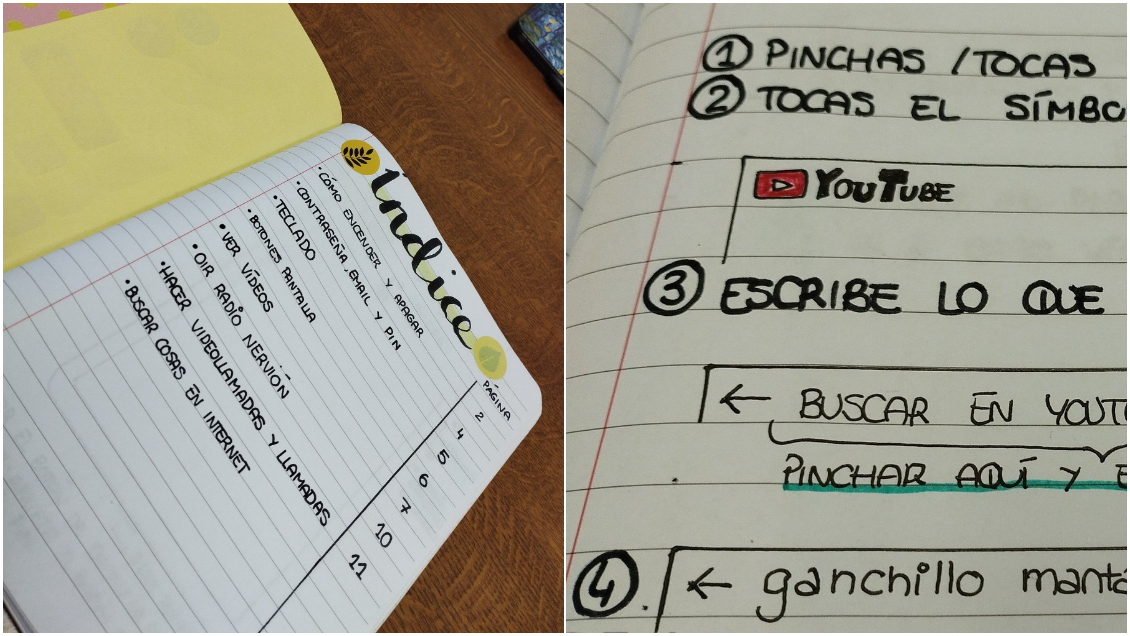 índice
PÁGINA
• CÓMO ENCENDER Y APAGAR 2
• CONTRASEÑA, EMAIL Y PIN 4
• TECLADO 5
• BOTONES PANTALLA 6
• VER VÍDEOS 7
• OIR RADIO NERVIÓN 10
• HACER VIDEOLLAMADAS Y LLAMADAS 11
• BUSCAR COSAS EN INTERNET
① PINCHAS / TOCAS
② TOCAS EL SÍMBO
YOUTUBE
③ ESCRIBE LO QUE
← BUSCAR EN YOUT
PINCHAR AQUÍ Y E
④. ← ganchillo manta